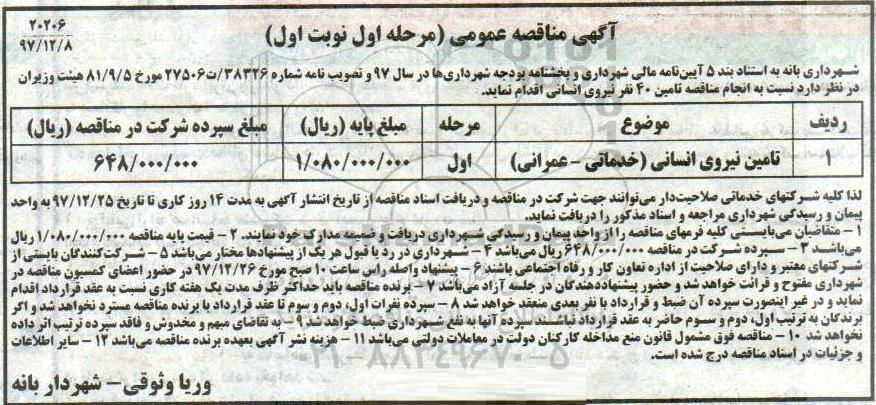 ۲۰۲۰۶
۹۷/۱۲/۸
آگهی مناقصه عمومی (مرحله اول نوبت اول)
شهرداری بانه به استناد بند ۵ آیین‌نامه مالی شهرداری و بخشنامه بودجه شهرداری‌ها در سال ۹۷ و تصویب نامه شماره ۳۸۳۲۶/ت۲۷۵۰۶ مورخ ۸۱/۹/۵ هیئت وزیران
در نظر دارد نسبت به انجام مناقصه تامین ۴۰ نفر نیروی انسانی اقدام نماید.
ردیف موضوع مرحله مبلغ پایه (ریال) مبلغ سپرده شرکت در مناقصه (ریال)
۱ تامین نیروی انسانی (خدماتی - عمرانی) اول ۱/۰۸۰/۰۰۰/۰۰۰ ۶۴۸/۰۰۰/۰۰۰
لذا کلیه شرکتهای خدماتی صلاحیت‌دار می‌توانند جهت شرکت در مناقصه و دریافت اسناد مناقصه از تاریخ انتشار آگهی به مدت ۱۴ روز کاری تا تاریخ ۹۷/۱۲/۲۵ به واحد
پیمان و رسیدگی شهرداری مراجعه و اسناد مذکور را دریافت نماید.
۱ - متقاضیان می‌بایستی کلیه فرمهای مناقصه را از واحد پیمان و رسیدگی شهرداری دریافت و ضمیمه مدارک خود نمایند. ۲ - قیمت پایه مناقصه ۱/۰۸۰/۰۰۰/۰۰۰ ریال
می‌باشد ۳ - سپرده شرکت در مناقصه ۶۴۸/۰۰۰/۰۰۰ ریال می‌باشد ۴ - شهرداری در رد یا قبول هر یک از پیشنهادها مختار می‌باشد ۵ - شرکت‌کنندگان بایستی از
شرکتهای معتبر و دارای صلاحیت از اداره تعاون کار و رفاه اجتماعی باشند ۶ - پیشنهاد واصله راس ساعت ۱۰ صبح مورخ ۹۷/۱۲/۲۶ در حضور اعضای کمسیون مناقصه در
شهرداری مفتوح و قرائت خواهد شد و حضور پیشنهاددهندگان در جلسه آزاد می‌باشد ۷ - برنده مناقصه باید حداکثر ظرف مدت یک هفته کاری نسبت به عقد قرارداد اقدام
نماید و در غیر اینصورت سپرده آن ضبط و قرارداد با نفر بعدی منعقد خواهد شد ۸ - سپرده نفرات اول، دوم و سوم تا عقد قرارداد با برنده مناقصه مسترد نخواهد شد و اگر
برندگان به ترتیب اول، دوم و سوم حاضر به عقد قرارداد نباشند سپرده آنها به نفع شهرداری ضبط خواهد شد ۹ - به تقاضای مبهم و مخدوش و فاقد سپرده ترتیب اثر داده
نخواهد شد ۱۰ - مناقصه فوق مشمول قانون منع مداخله کارکنان دولت در معاملات دولتی می‌باشد ۱۱ - هزینه نشر آگهی بعهده برنده مناقصه می‌باشد ۱۲ - سایر اطلاعات
و جزئیات در اسناد مناقصه درج شده است.
۰۲۱-۸۸۳۴۹۶۷۰-۵
وریا وثوقی - شهردار بانه